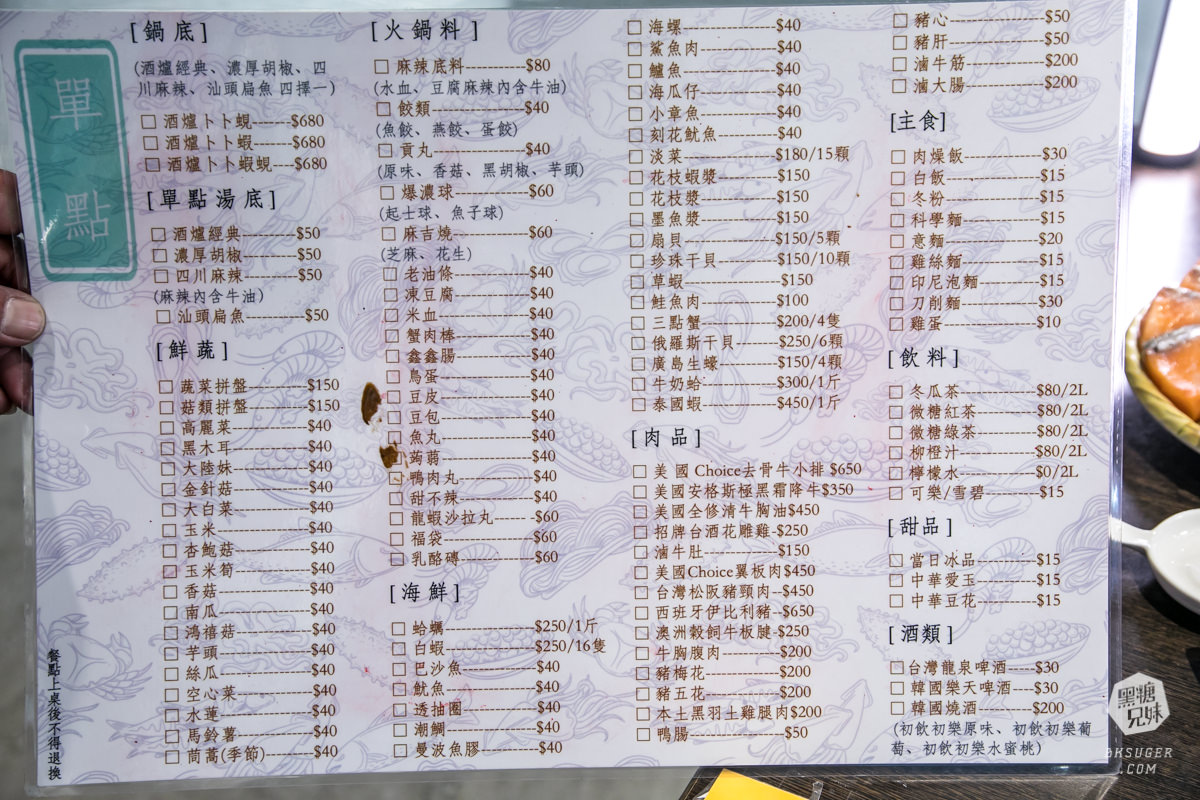 單
點
餐點上桌後不得退換
[鍋底]
(酒爐經典、濃厚胡椒、四
川麻辣、汕頭扁魚 四擇一)
酒爐卜卜蜆------$680
酒爐卜卜蝦------$680
酒爐卜卜蝦蜆---$680
[單點湯底]
酒爐經典--------$50
濃厚胡椒--------$50
四川麻辣--------$50
(麻辣內含牛油)
汕頭扁魚--------$50
[鮮蔬]
蔬菜拼盤--------$150
菇類拼盤--------$150
高麗菜----------$40
黑木耳----------$40
大陸妹----------$40
金針菇----------$40
大白菜----------$40
玉米------------$40
杏鮑菇----------$40
玉米筍----------$40
香菇------------$40
南瓜------------$40
鴻禧菇----------$40
芋頭------------$40
絲瓜------------$40
空心菜----------$40
水蓮------------$40
馬鈴薯----------$40
茼蒿(季節)------$40
[火鍋料]
麻辣底料--------$80
(水血、豆腐麻辣內含牛油)
餃類------------$40
(魚餃、燕餃、蛋餃)
貢丸------------$40
(原味、香菇、黑胡椒、芋頭)
爆濃球----------$60
(起士球、魚子球)
麻吉燒----------$60
(芝麻、花生)
老油條----------$40
凍豆腐----------$40
米血------------$40
蟹肉棒----------$40
鑫鑫腸----------$40
鳥蛋------------$40
豆皮------------$40
豆包------------$40
魚丸------------$40
蒟蒻------------$40
鴨肉丸----------$40
甜不辣----------$40
龍蝦沙拉丸------$60
福袋------------$60
乳酪磚----------$60
[海鮮]
蛤蠣------------$250/1斤
白蝦------------$250/16隻
巴沙魚----------$40
魷魚------------$40
透抽圈----------$40
潮鯛------------$40
曼波魚膠--------$40
海螺------------$40
鯊魚肉----------$40
鱸魚------------$40
海瓜仔----------$40
小章魚----------$40
刻花魷魚--------$40
淡菜------------$180/15顆
花枝蝦漿--------$150
花枝漿----------$150
墨魚漿----------$150
扇貝------------$150/5顆
珍珠干貝--------$150/10顆
草蝦------------$150
鮭魚肉----------$100
三點蟹----------$200/4隻
俄羅斯干貝------$250/6顆
廣島生蠔--------$150/4顆
牛奶蛤----------$300/1斤
泰國蝦----------$450/1斤
[肉品]
美國 Choice去骨牛小排 $650
美國安格斯極黑霜降牛$350
美國全修清牛胸油$450
招牌台酒花雕雞-$250
滷牛肚----------$150
美國Choice翼板肉$450
台灣松阪豬頸肉--$450
西班牙伊比利豬--$650
澳洲穀飼牛板腱-$250
牛胸腹肉--------$200
豬梅花----------$200
豬五花----------$200
本土黑羽土雞腿肉$200
鴨腸------------$50
豬心------------$50
豬肝------------$50
滷牛筋----------$200
滷大腸----------$200
[主食]
肉燥飯----------$30
白飯------------$15
冬粉------------$15
科學麵----------$15
意麵------------$20
雞絲麵----------$15
印尼泡麵--------$15
刀削麵----------$30
雞蛋------------$10
[飲料]
冬瓜茶----------$80/2L
微糖紅茶--------$80/2L
微糖綠茶--------$80/2L
柳橙汁----------$80/2L
檸檬水----------$0/2L
可樂/雪碧-------$15
[甜品]
當日冰品--------$15
中華愛玉--------$15
中華豆花--------$15
[酒類]
台灣龍泉啤酒----$30
韓國樂天啤酒----$30
韓國燒酒--------$200
(初飲初樂原味、初飲初樂葡
萄、初飲初樂水蜜桃)
黑糖
兄妹
BKSUGER
.COM